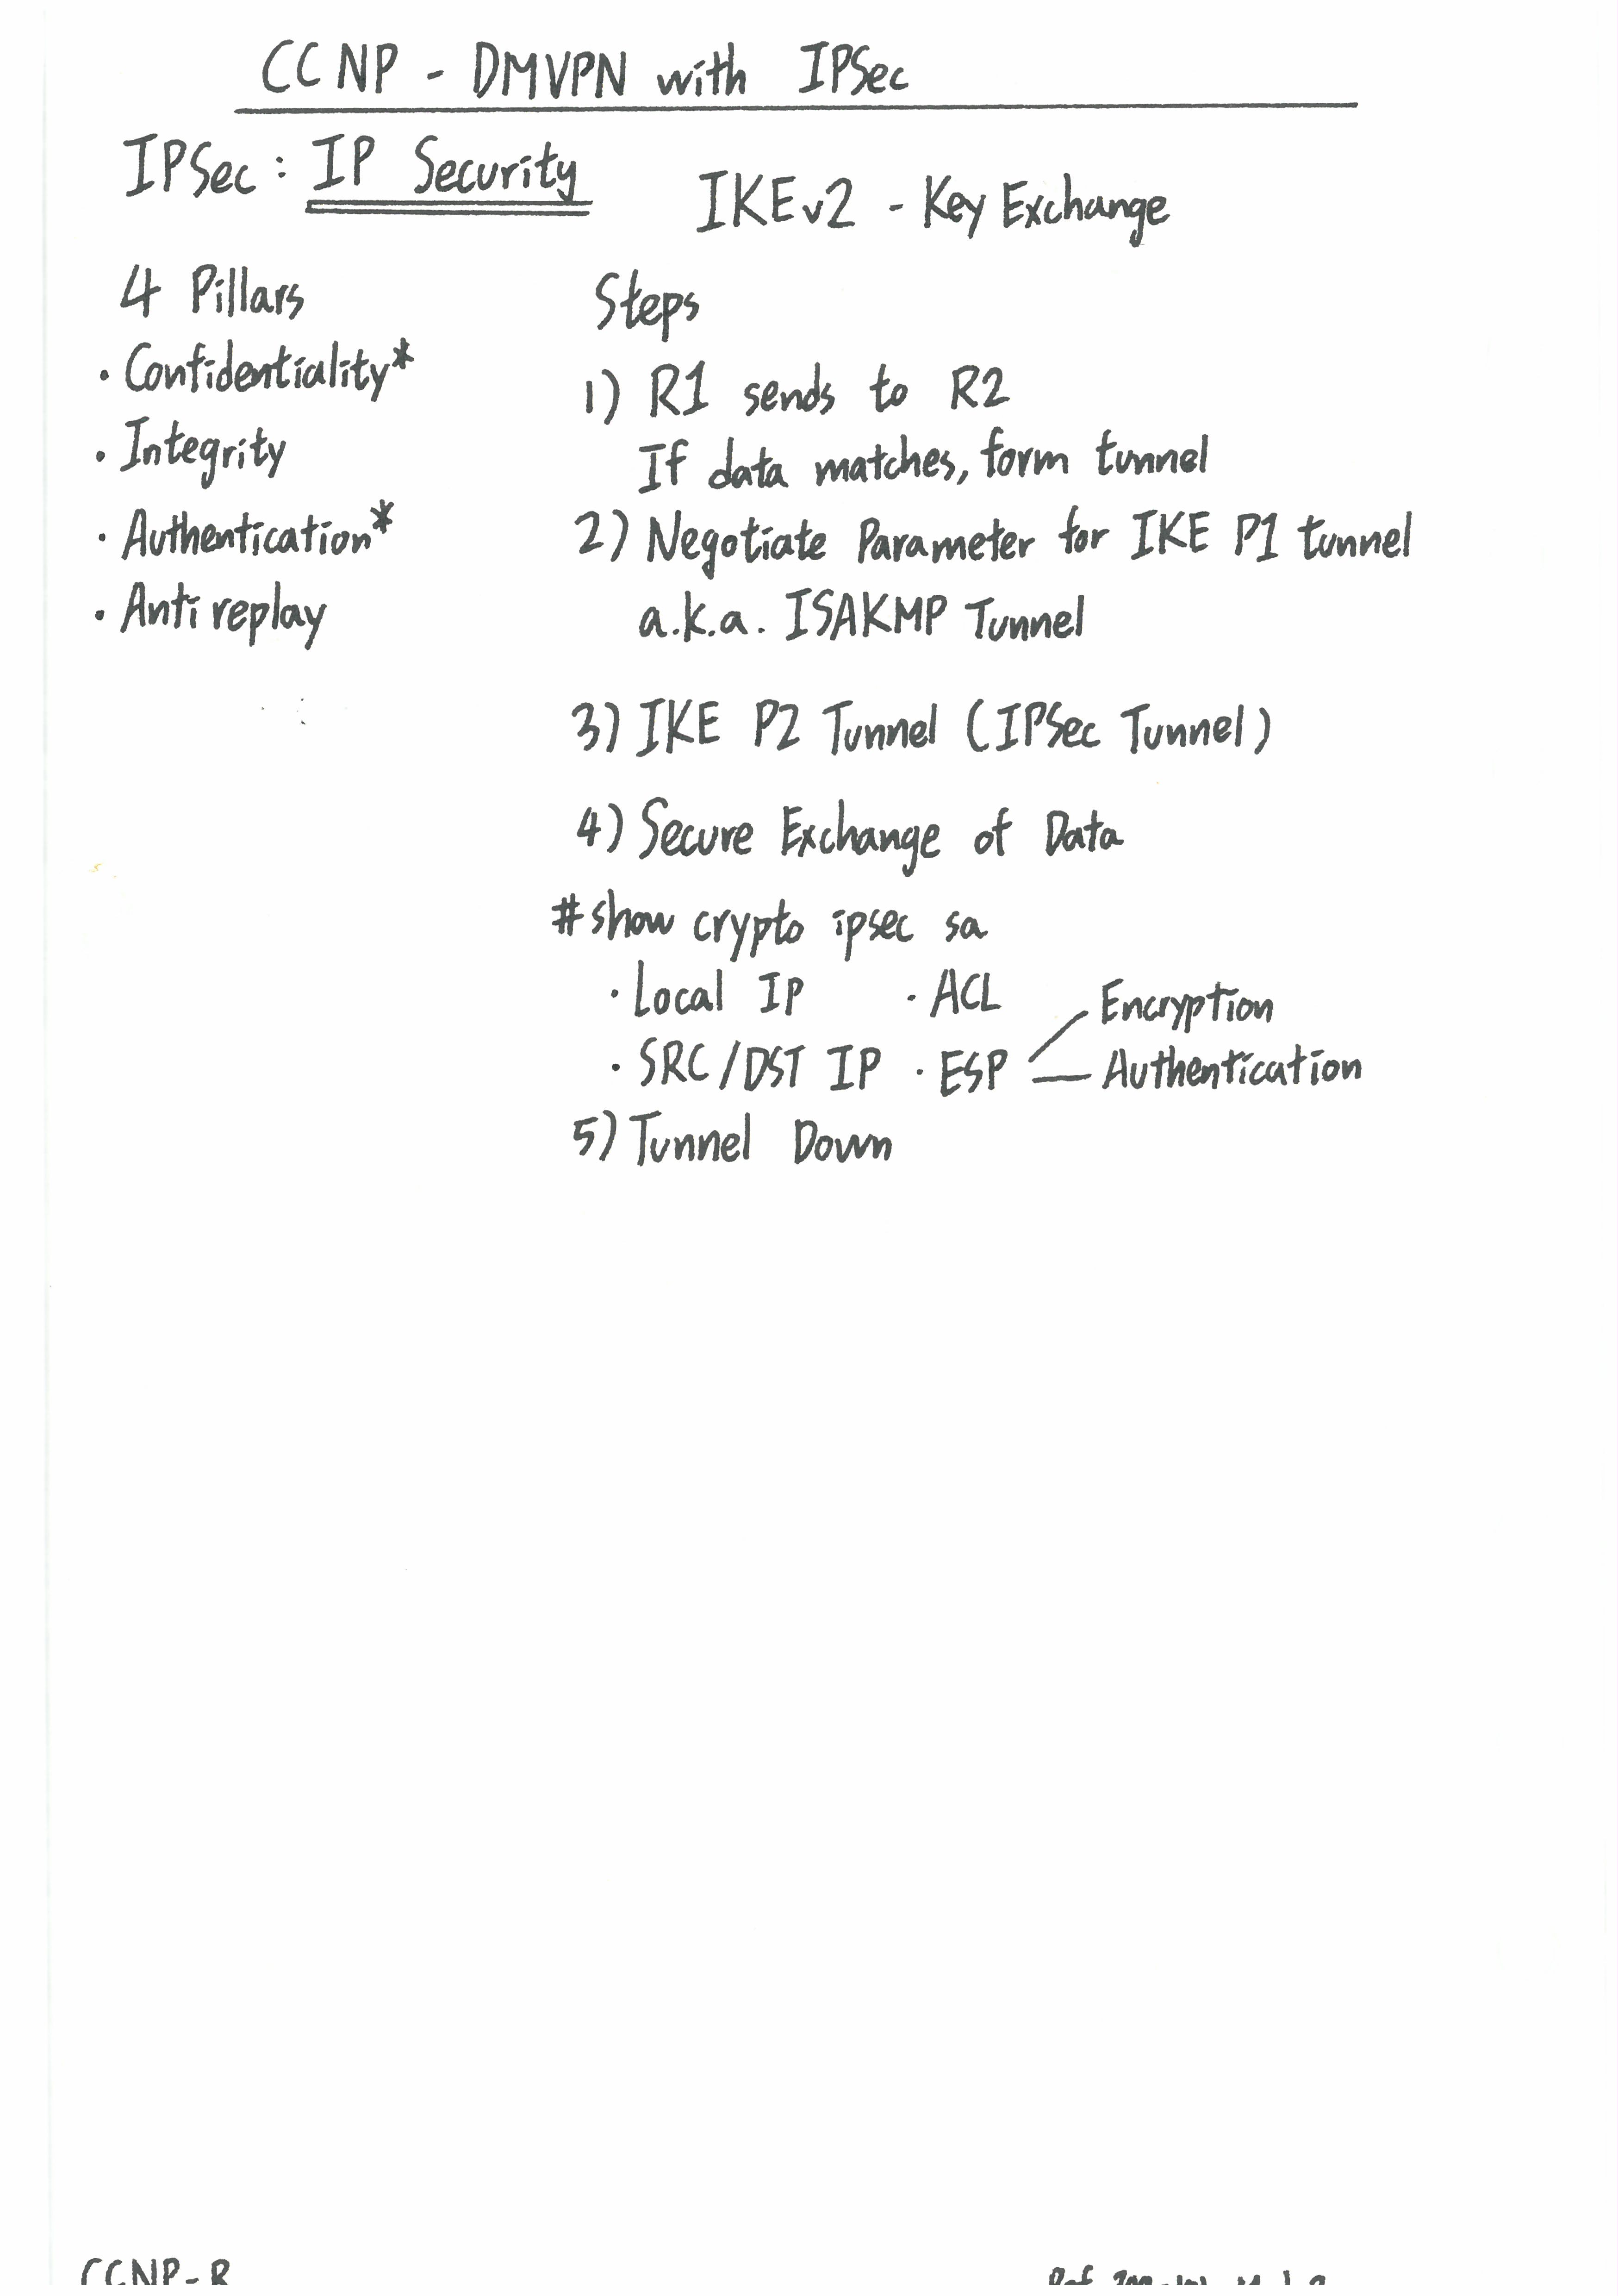 CCNP - DMVPN with IPSec
IPSec : IP Security
IKEv2 - Key Exchange
4 Pillars
• Confidentiality*
• Integrity
• Authentication*
• Anti replay
Steps
1) R1 sends to R2
If data matches, form tunnel
2) Negotiate Parameter for IKE P1 tunnel
a.k.a. ISAKMP Tunnel
3) IKE P2 Tunnel (IPSec Tunnel)
4) Secure Exchange of Data
#show crypto ipsec sa
• Local IP • ACL
• SRC/DST IP • ESP
Encryption
Authentication
5) Tunnel Down
CCNP-R
Ref